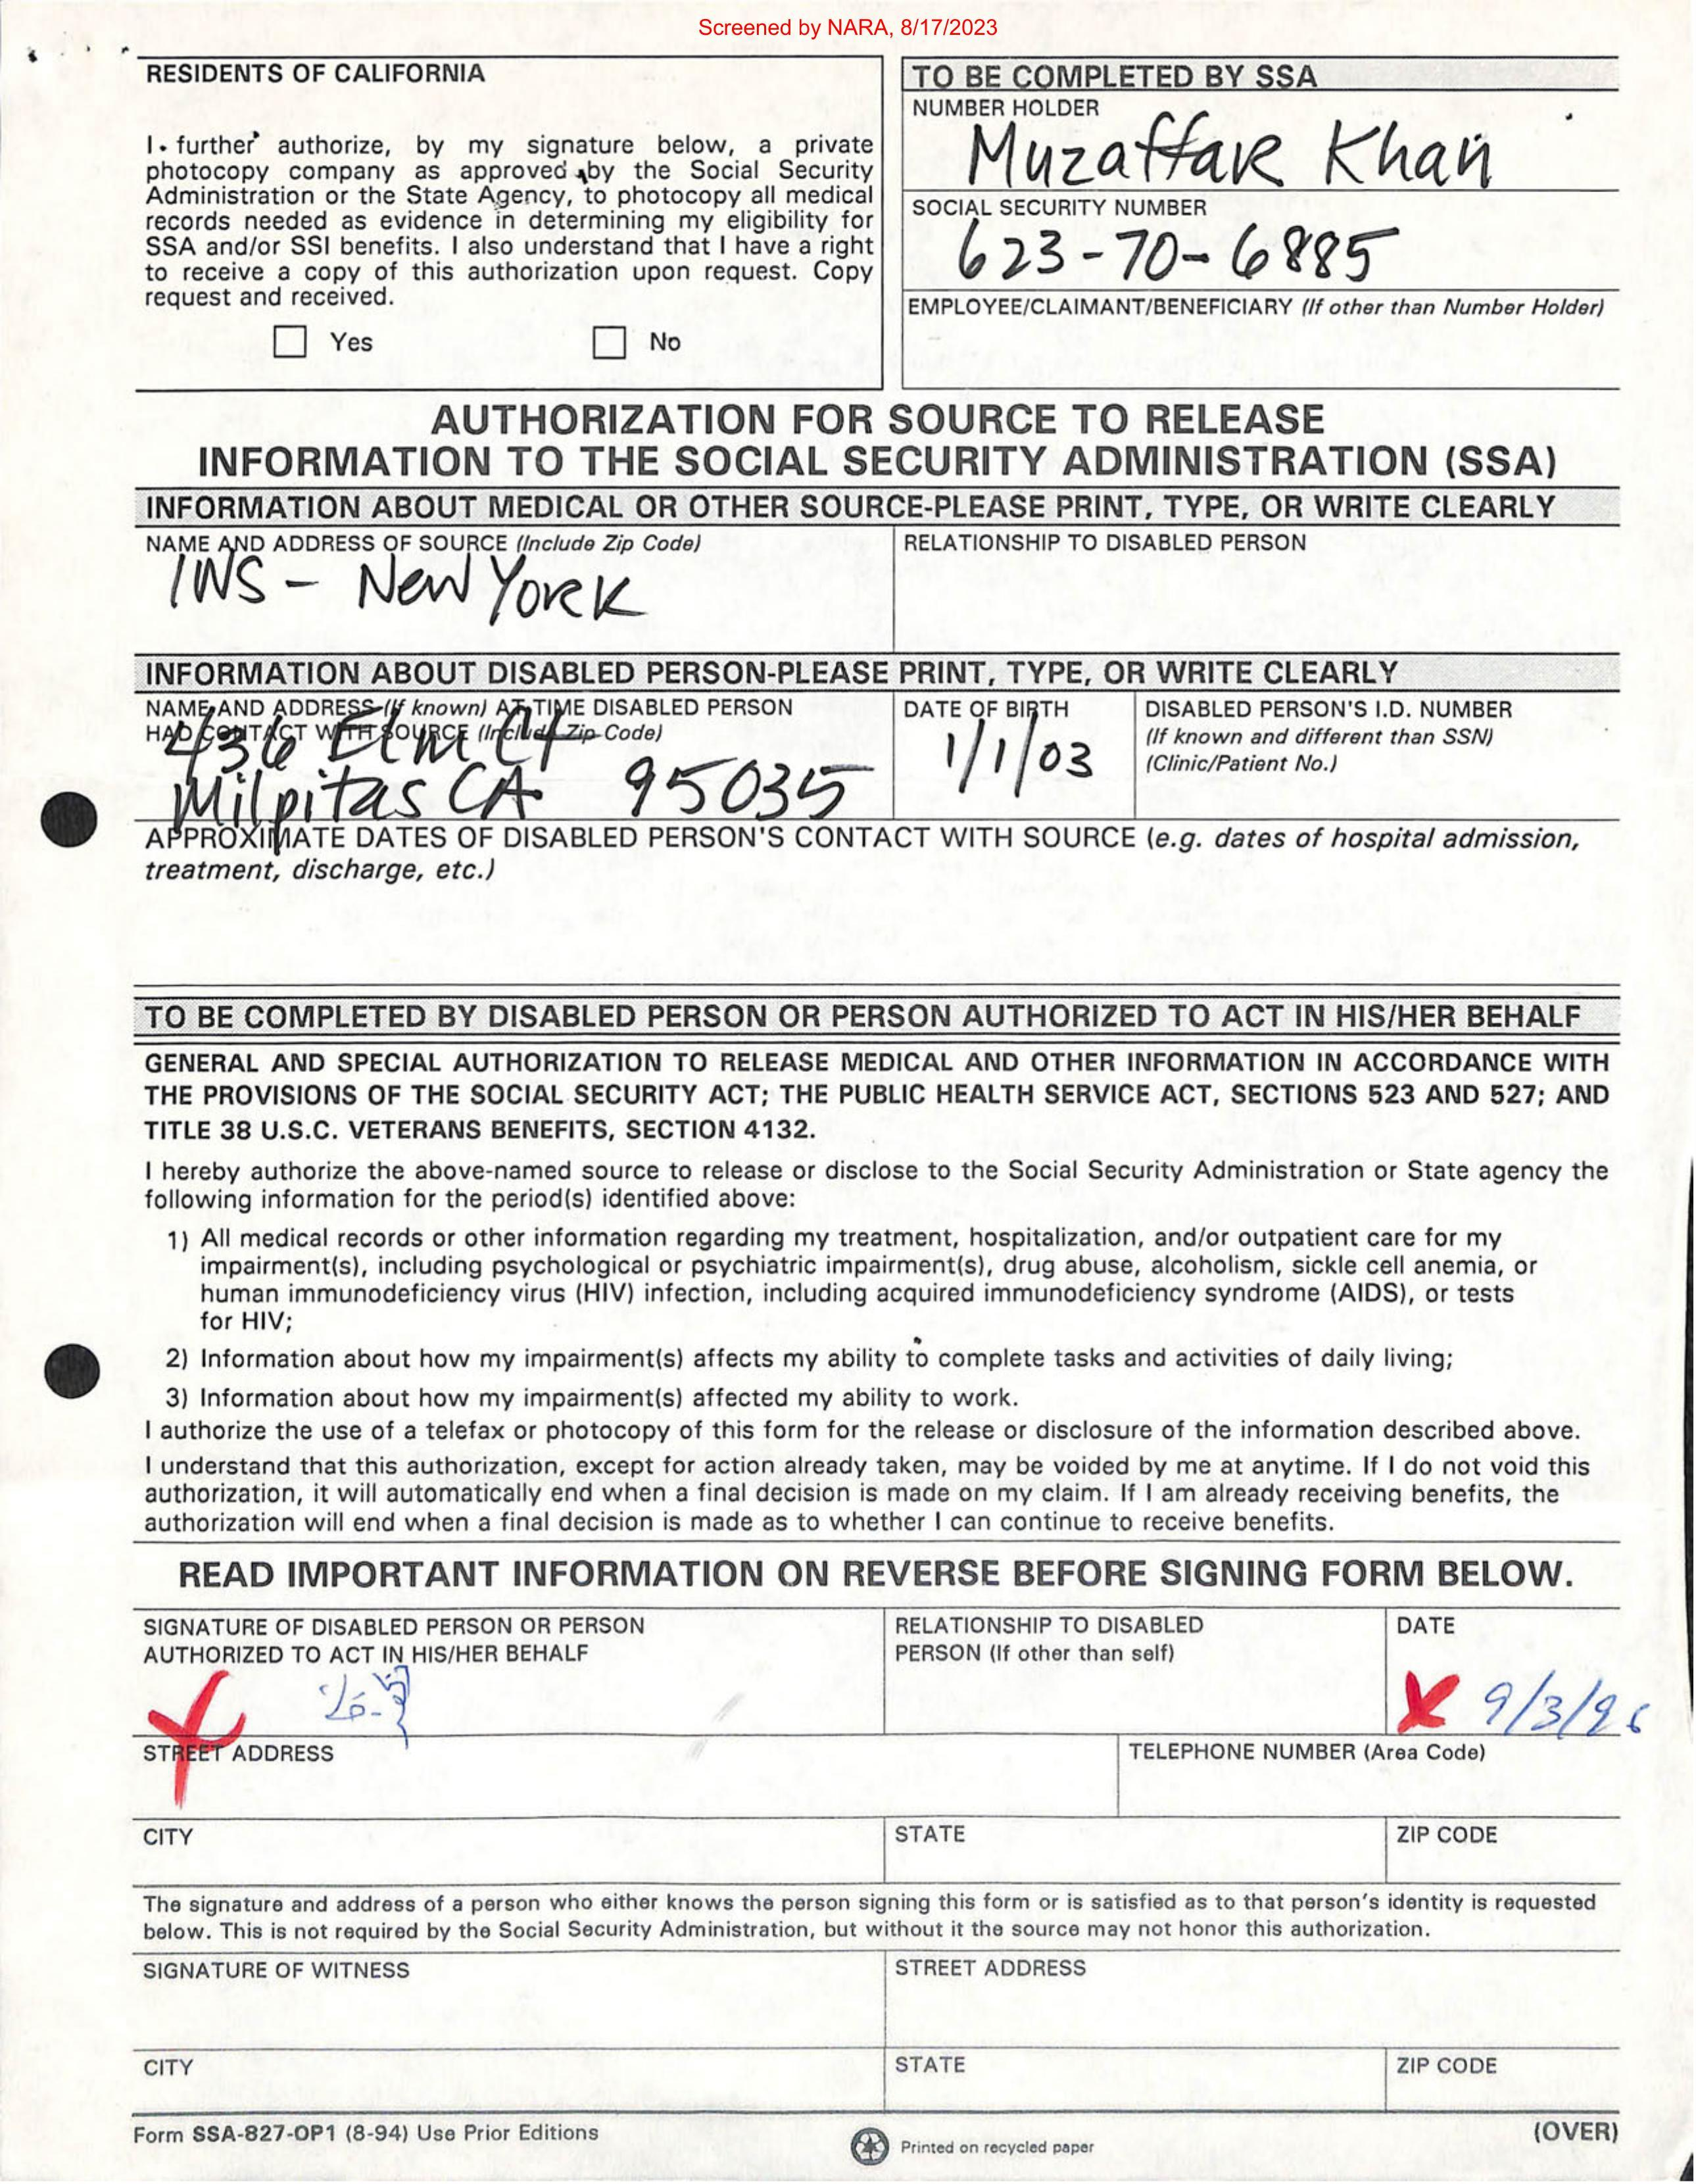 Screened by NARA, 8/17/2023
RESIDENTS OF CALIFORNIA
I further authorize, by my signature below, a private
photocopy company as approved by the Social Security
Administration or the State Agency, to photocopy all medical
records needed as evidence in determining my eligibility for
SSA and/or SSI benefits. I also understand that I have a right
to receive a copy of this authorization upon request. Copy
request and received.
Yes No
TO BE COMPLETED BY SSA
NUMBER HOLDER
Muzaffar Khan
SOCIAL SECURITY NUMBER
623-70-6885
EMPLOYEE/CLAIMANT/BENEFICIARY (If other than Number Holder)
AUTHORIZATION FOR SOURCE TO RELEASE
INFORMATION TO THE SOCIAL SECURITY ADMINISTRATION (SSA)
INFORMATION ABOUT MEDICAL OR OTHER SOURCE-PLEASE PRINT, TYPE, OR WRITE CLEARLY
NAME AND ADDRESS OF SOURCE (Include Zip Code)
INS - New York
RELATIONSHIP TO DISABLED PERSON
INFORMATION ABOUT DISABLED PERSON-PLEASE PRINT, TYPE, OR WRITE CLEARLY
NAME AND ADDRESS (If known) AT TIME DISABLED PERSON
HAD CONTACT WITH SOURCE (Include Zip Code)
436 Elm Ct
Milpitas CA 95035
DATE OF BIRTH
1/1/03
DISABLED PERSON'S I.D. NUMBER
(If known and different than SSN)
(Clinic/Patient No.)
APPROXIMATE DATES OF DISABLED PERSON'S CONTACT WITH SOURCE (e.g. dates of hospital admission,
treatment, discharge, etc.)
TO BE COMPLETED BY DISABLED PERSON OR PERSON AUTHORIZED TO ACT IN HIS/HER BEHALF
GENERAL AND SPECIAL AUTHORIZATION TO RELEASE MEDICAL AND OTHER INFORMATION IN ACCORDANCE WITH
THE PROVISIONS OF THE SOCIAL SECURITY ACT; THE PUBLIC HEALTH SERVICE ACT, SECTIONS 523 AND 527; AND
TITLE 38 U.S.C. VETERANS BENEFITS, SECTION 4132.
I hereby authorize the above-named source to release or disclose to the Social Security Administration or State agency the
following information for the period(s) identified above:
1) All medical records or other information regarding my treatment, hospitalization, and/or outpatient care for my
impairment(s), including psychological or psychiatric impairment(s), drug abuse, alcoholism, sickle cell anemia, or
human immunodeficiency virus (HIV) infection, including acquired immunodeficiency syndrome (AIDS), or tests
for HIV;
2) Information about how my impairment(s) affects my ability to complete tasks and activities of daily living;
3) Information about how my impairment(s) affected my ability to work.
I authorize the use of a telefax or photocopy of this form for the release or disclosure of the information described above.
I understand that this authorization, except for action already taken, may be voided by me at anytime. If I do not void this
authorization, it will automatically end when a final decision is made on my claim. If I am already receiving benefits, the
authorization will end when a final decision is made as to whether I can continue to receive benefits.
READ IMPORTANT INFORMATION ON REVERSE BEFORE SIGNING FORM BELOW.
SIGNATURE OF DISABLED PERSON OR PERSON
AUTHORIZED TO ACT IN HIS/HER BEHALF
X
RELATIONSHIP TO DISABLED
PERSON (If other than self)
DATE
X 9/3/96
STREET ADDRESS
TELEPHONE NUMBER (Area Code)
CITY
STATE
ZIP CODE
The signature and address of a person who either knows the person signing this form or is satisfied as to that person's identity is requested
below. This is not required by the Social Security Administration, but without it the source may not honor this authorization.
SIGNATURE OF WITNESS
STREET ADDRESS
CITY
STATE
ZIP CODE
Form SSA-827-OP1 (8-94) Use Prior Editions
Printed on recycled paper
(OVER)